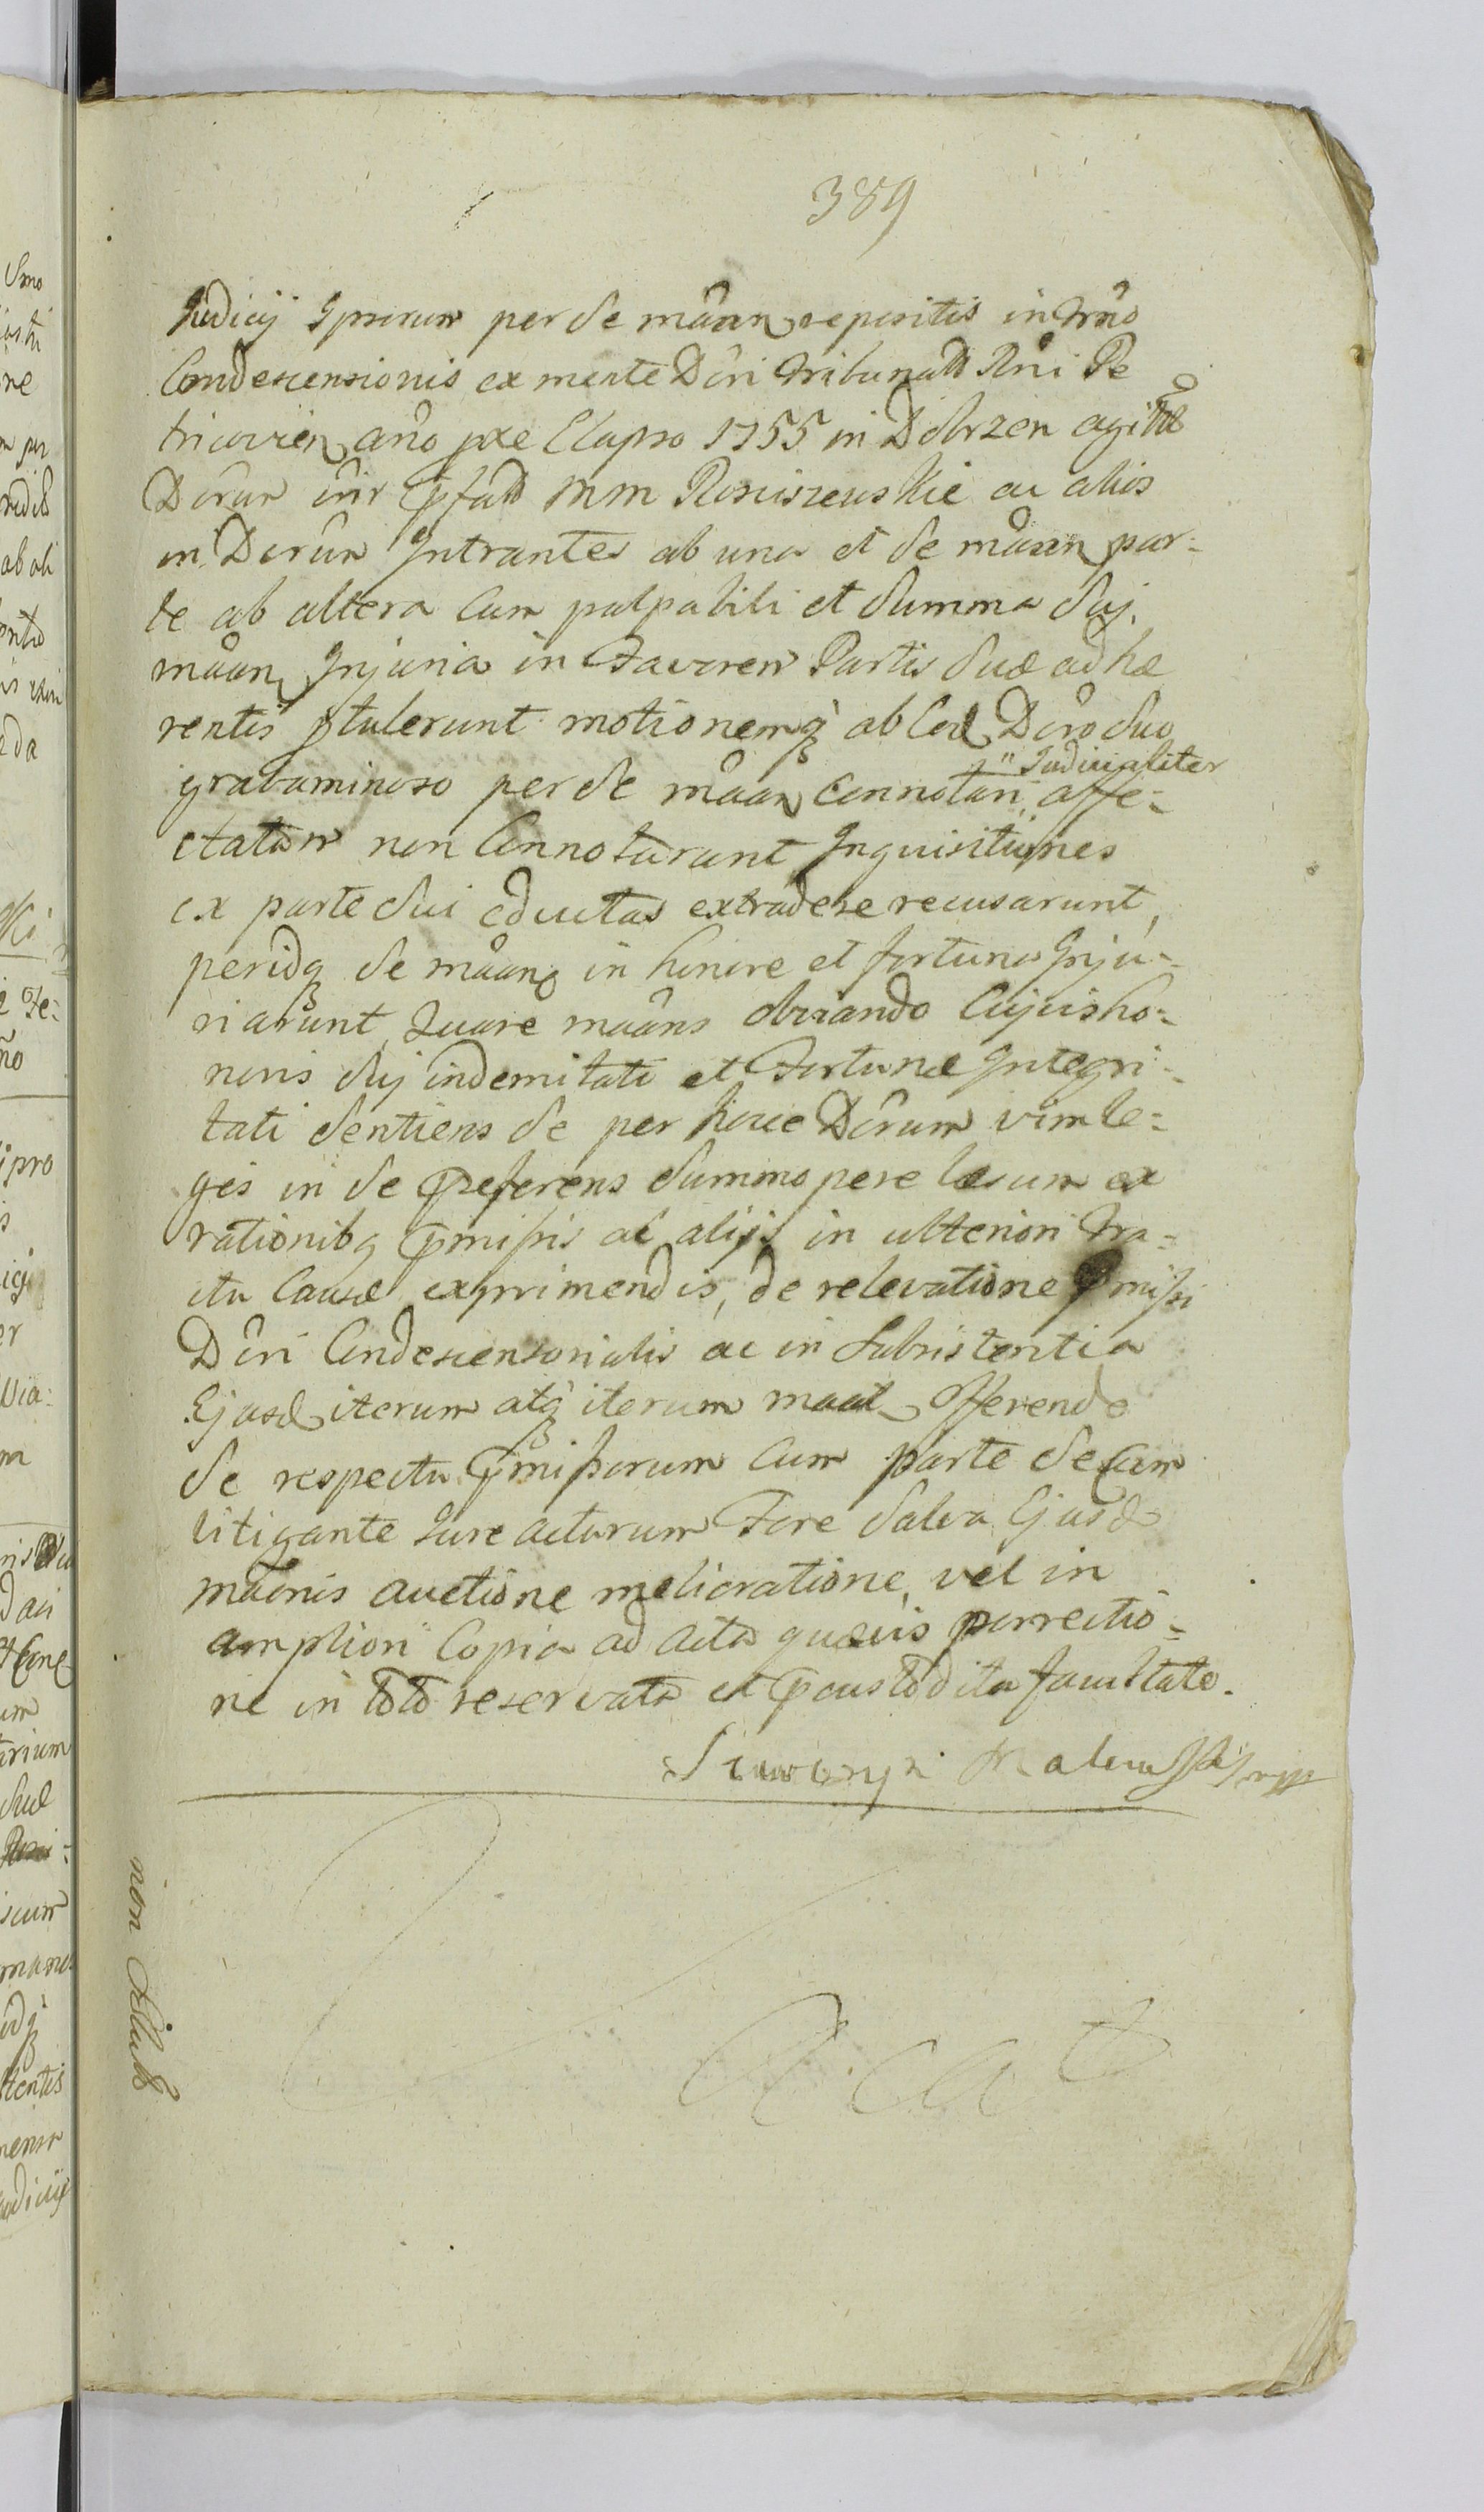 389
Judicij Ipsorum per se mãan repositis in trño
Condescensionis ex mente Dcri Tribunald Rni Pe
tricovien año pxe Elapso 1755 in Dobrzen agitte
Dcrum inir ppfatt MM Rosciszewskie ac alios
in Dcrum Intrantes ab una et se mãan par=
te ab altera Cum palpabili et Summa Suj
mãan Injuria in Favorem Partis Suæ adhæ
rentis ptulerunt motionemq ab Eod Dcro Suo
Judicialiter
gravaminoso per se mãan Connotan affe=
ctatam non Connotarunt Inquisitiones
ex parte Sui eductas extradere recusarunt,
peridq se mãan in honore et fortuna Inju=
riarunt, Quare mãans obviando Cujusho=
noris Suj indemitati et Fortunæ Integri=
tati Sentiens se per hocce Dcrum vim le=
gis in se præferens Summopere læsum ex
rationibq pmissis ac alijs in ulteriori tra=
ctu Causæ exprimendis, de relevatione pmissi
Dcri Condescensorialis ac in Subsistentia
Ejusd iterum atq iterum maãt Offerendo
se respectu pmissorum Cum parte secum
litigante Jure acturum Fore Salva Ejusd
mãonis auctione melioratione, vel in
ampliori Copia ad acta quævis porrectio=
ne in toto reservata et pcustodita facultate.
non
Vacat